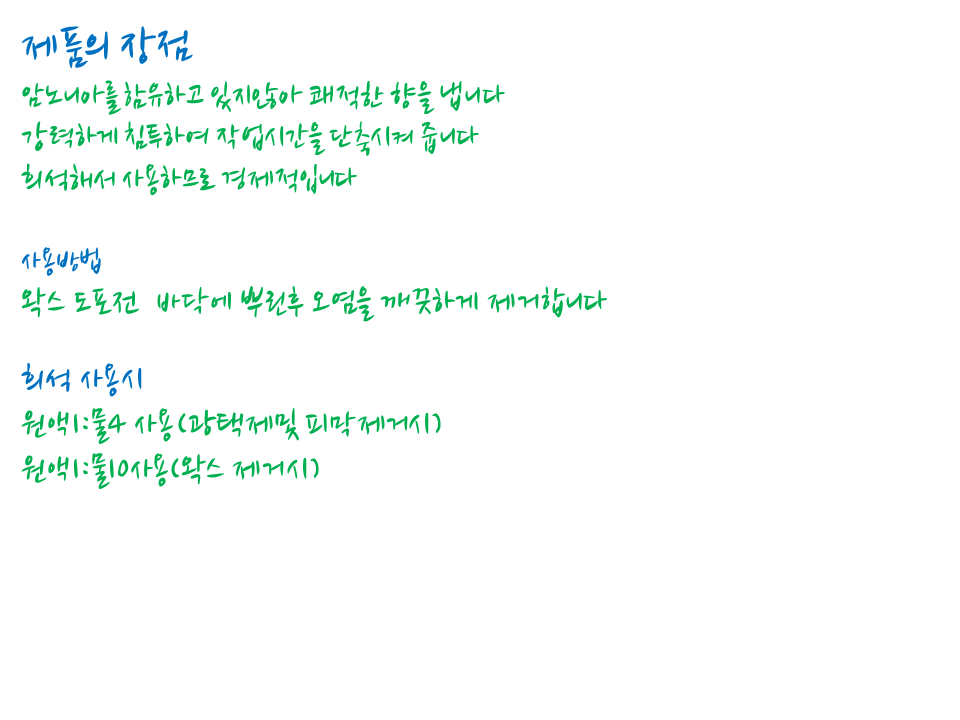 제품의 장점
암노니아를 함유하고 있지않아 쾌적한 향을 냅니다
강력하게 침투하여 작업시간을 단축시켜 줍니다
희석해서 사용하므로 경제적입니다
사용방법
왁스 도포전 바닥에 뿌린후 오염을 깨끗하게 제거합니다
희석 사용시
원액1:물4 사용(광택제및 피막제거시)
원액1:물10사용(왁스 제거시)